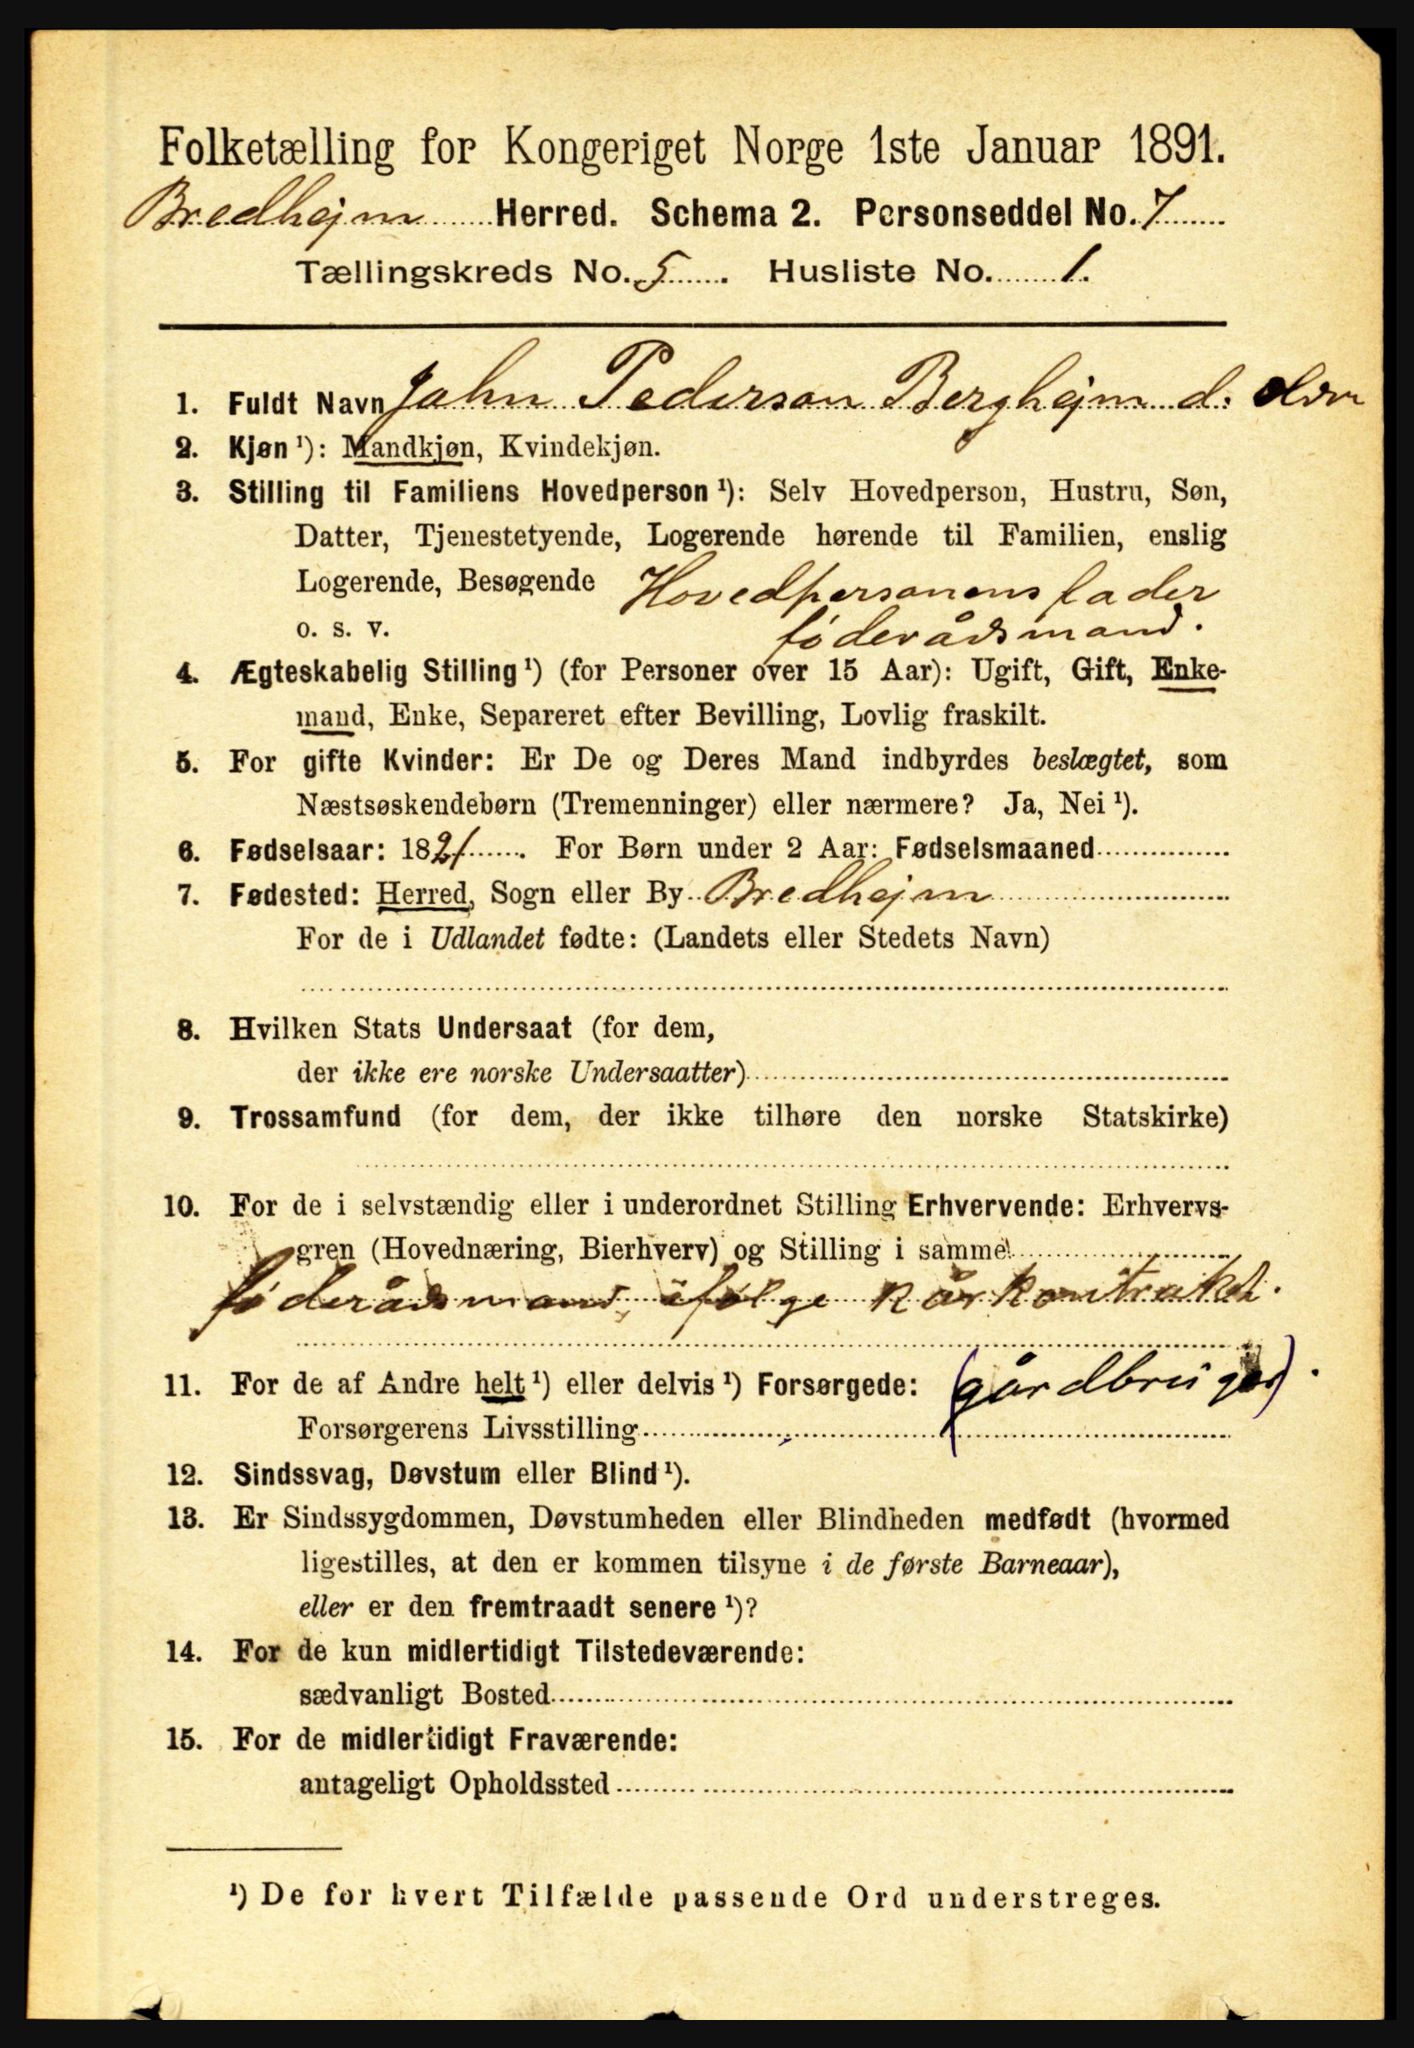 Folketælling for Kongeriget Norge 1ste Januar 1891.
Bredhejm Herred. Schema 2. Personseddel No. 7
Tællingskreds No. 5. Husliste No. 1.
1. Fuldt Navn John Pederson Berghejm d. eldre
2. Kjøn ¹): Mandkjøn, Kvindekjøn.
3. Stilling til Familiens Hovedperson ¹): Selv Hovedperson, Hustru, Søn,
Datter, Tjenestetyende, Logerende hørende til Familien, enslig
Logerende, Besøgende Hovedpersonens fader
o. s. v. føderådsmand.
4. Ægteskabelig Stilling ¹) (for Personer over 15 Aar): Ugift, Gift, Enke-
mand, Enke, Separeret efter Bevilling, Lovlig fraskilt.
5. For gifte Kvinder: Er De og Deres Mand indbyrdes beslægtet, som
Næstsøskendebørn (Tremenninger) eller nærmere? Ja, Nei ¹).
6. Fødselsaar: 1821. For Børn under 2 Aar: Fødselsmaaned
7. Fødested: Herred, Sogn eller By Bredhejm
For de i Udlandet fødte: (Landets eller Stedets Navn)
8. Hvilken Stats Undersaat (for dem,
der ikke ere norske Undersaatter)
9. Trossamfund (for dem, der ikke tilhøre den norske Statskirke)
10. For de i selvstændig eller i underordnet Stilling Erhvervende: Erhvervs-
gren (Hovednæring, Bierhverv) og Stilling i samme
føderådsmand, ifølge kårkontrakt.
11. For de af Andre helt ¹) eller delvis ¹) Forsørgede: (gårdbruger).
Forsørgerens Livsstilling
12. Sindssvag, Døvstum eller Blind ¹).
13. Er Sindssygdommen, Døvstumheden eller Blindheden medfødt (hvormed
ligestilles, at den er kommen tilsyne i de første Barneaar),
eller er den fremtraadt senere ¹)?
14. For de kun midlertidigt Tilstedeværende:
sædvanligt Bosted
15. For de midlertidigt Fraværende:
antageligt Opholdssted
¹) De for hvert Tilfælde passende Ord understreges.